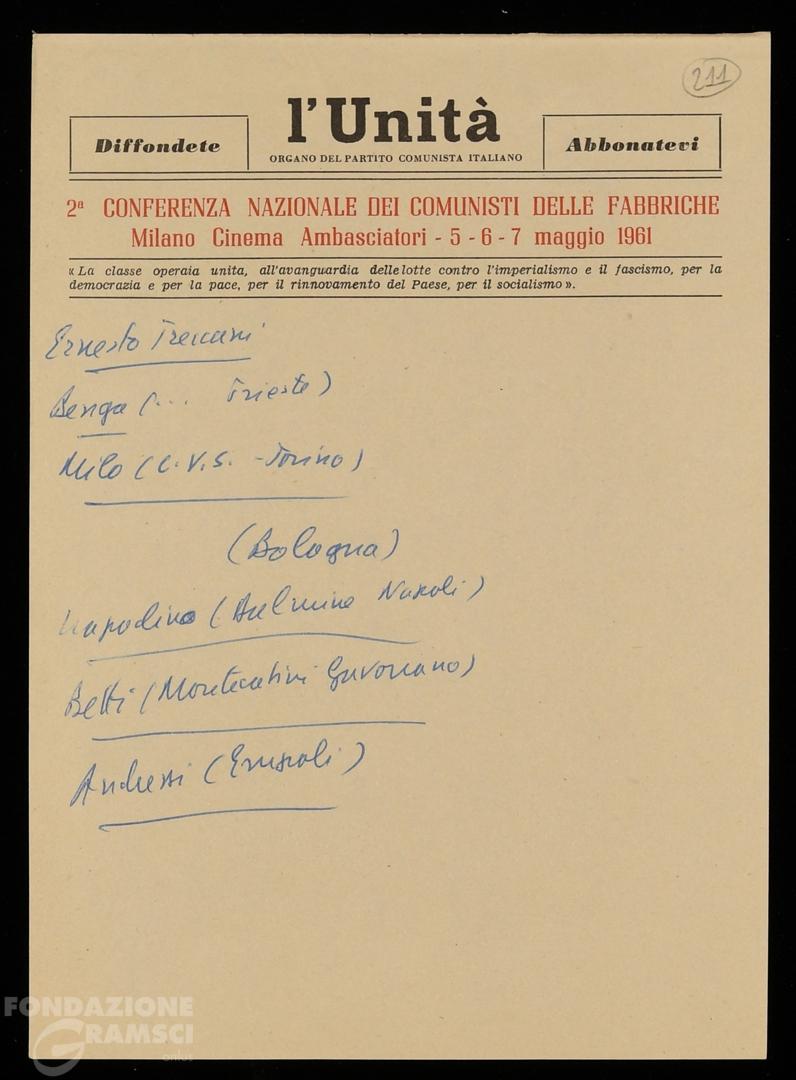 211
Diffondete
l'Unità
ORGANO DEL PARTITO COMUNISTA ITALIANO
Abbonatevi
2ª CONFERENZA NAZIONALE DEI COMUNISTI DELLE FABBRICHE
Milano Cinema Ambasciatori - 5 - 6 - 7 maggio 1961
« La classe operaia unita, all'avanguardia delle lotte contro l'imperialismo e il fascismo, per la
democrazia e per la pace, per il rinnovamento del Paese, per il socialismo ».
Ernesto Treccani
(... Trieste)
Milo (C.V.S. - Torino)
(Bologna)
Napoli)
Betti (Montecatini Gavorrano)
FONDAZIONE
GRAMSCI
onlus